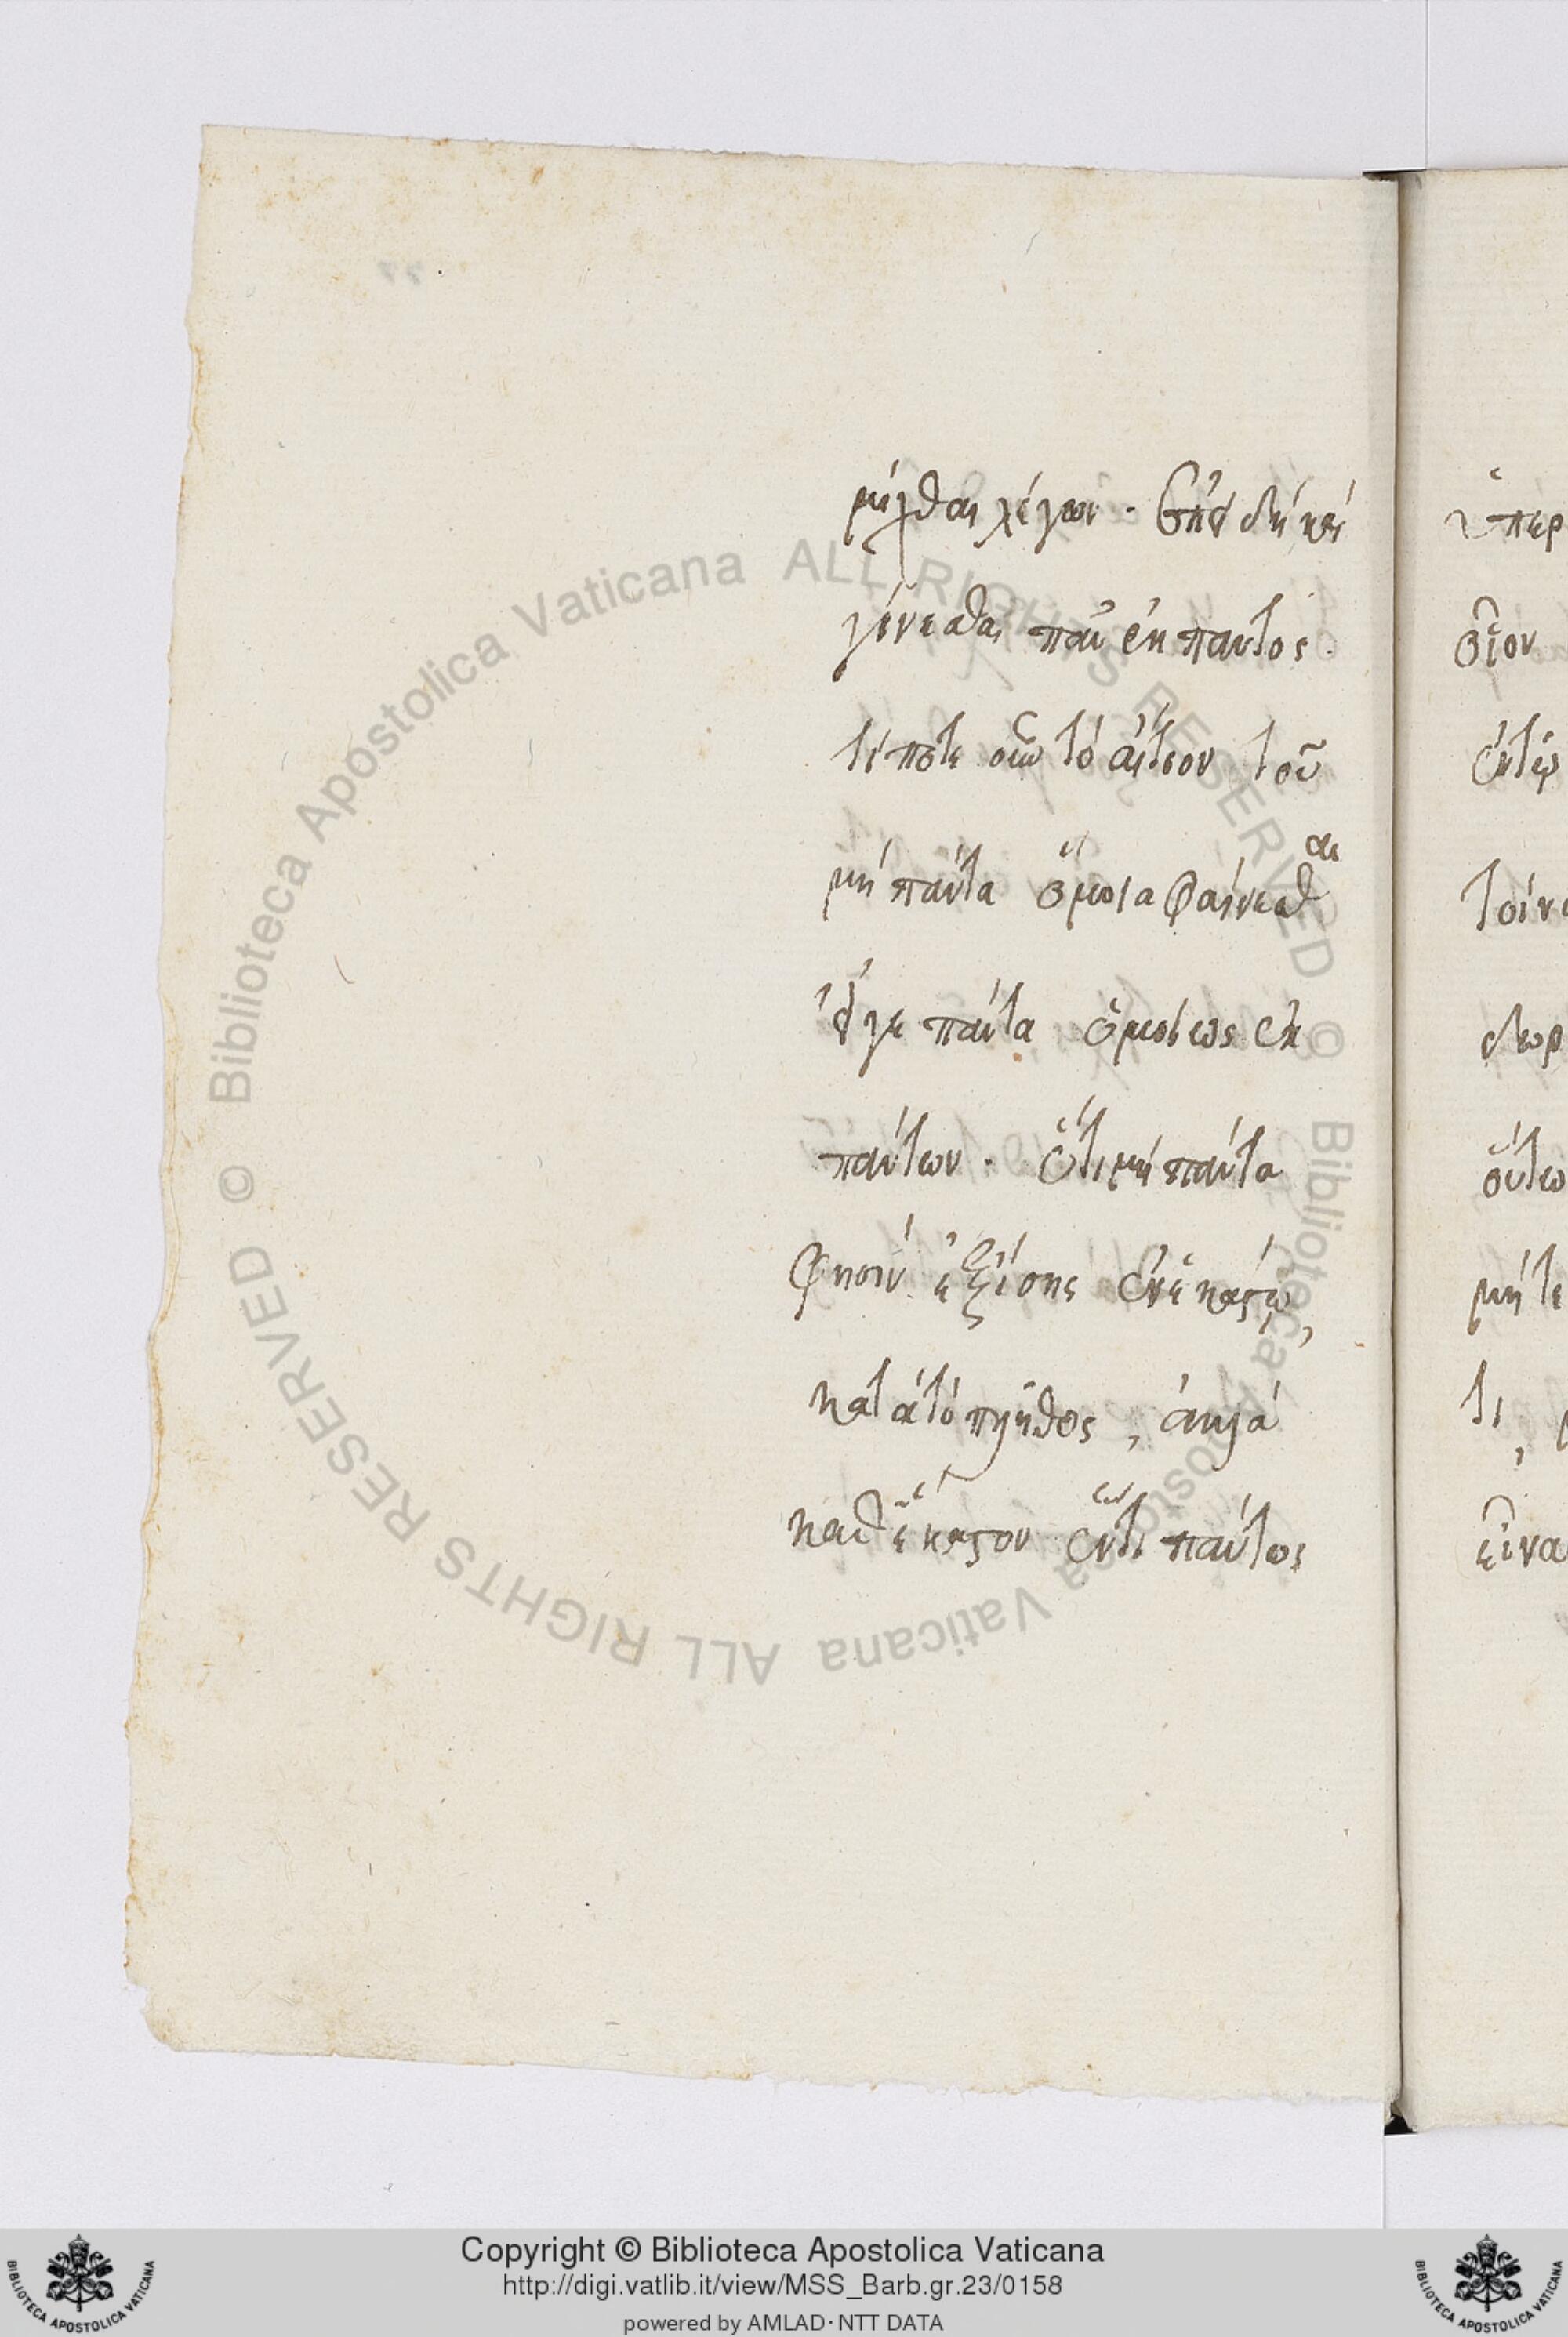 μίχθαι λέγων. ἐπεὶ δὴ καὶ
γίνεσθαι πᾶν ἐκ παντὸς.
τί ποτε οὖν τὸ αἴτιον τοῦ
μὴ πάντα ὅμοια φαίνεσθαι
εἴγε πάντα ὁμοίως ἐκ
πάντων. ὅτι μὴ πάντα
φησὶν ἐξίσης ἐν ἑκάστῳ,
κατὰ τὸ πλῆθος, ἀλλὰ
καθ' ἕκαστον ἐν τι παντὸς
ὑπερ
οἷον
ἐν τῷ
τοίν
δωρ
οὕτω
μήτε
τι,
εἶνα
© Biblioteca Apostolica Vaticana ALL RIGHTS RESERVED © Biblioteca Apostolica Vaticana ALL RIGHTS RESERVED
Copyright © Biblioteca Apostolica Vaticana
http://digi.vatlib.it/view/MSS_Barb.gr.23/0158
powered by AMLAD·NTT DATA
BIBLIOTECA APOSTOLICA VATICANA
BIBLIOTECA APOSTOLICA VATICANA